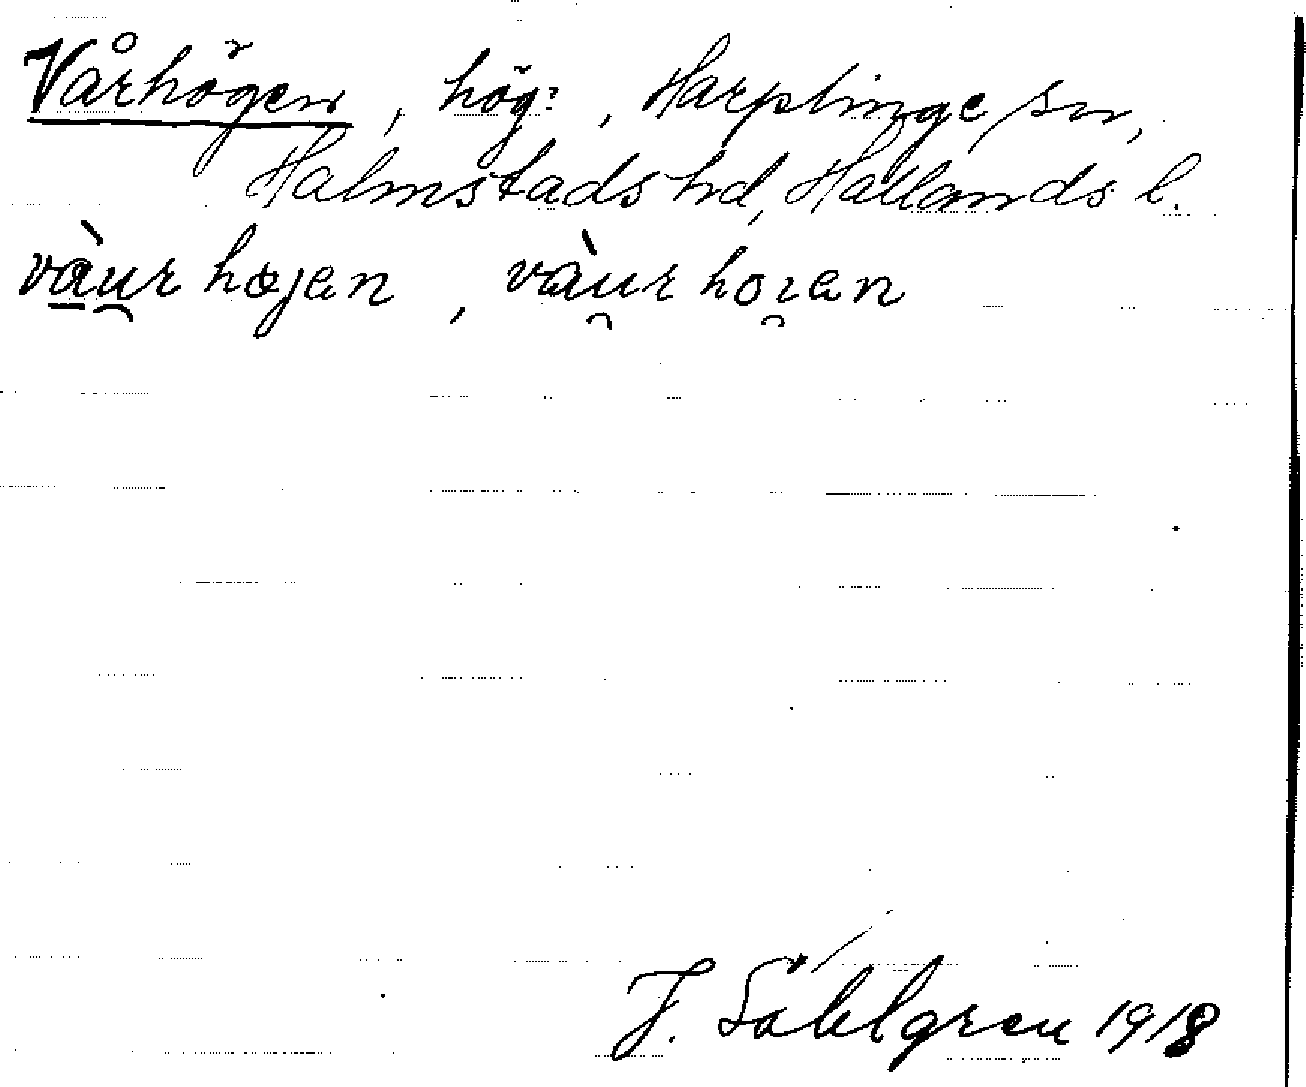 Vårhögen, hög?, Harplinge sn,
Halmstads hd, Hallands l.
và̱u̯r højen, vàu̯r hoı̯en
J. Sahlgren 1918